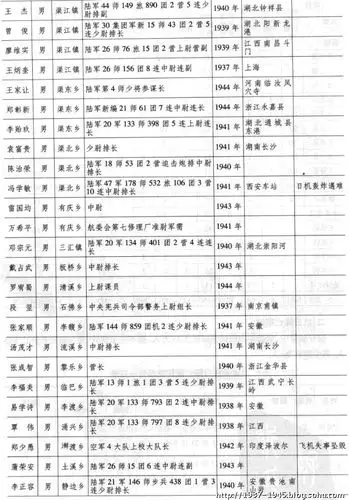 王 杰 男 渠江镇 陆军44师149旅890团2营5连少尉排副 1940年 湖北钟祥县
曾 俊 男 渠江镇 陆军30集团军新15师43团2营5连少尉排长 1939年 湖北阳新龙港
廖维实 男 渠江镇 陆军26师76旅15团2营上尉营副 1939年 江西南昌斗门
王炳奎 男 渠江镇 陆军26师156团8连中尉连副 1937年 上海
王家让 男 渠东乡 陆军第4师少将参谋长 1944年 河南临汝风穴寺
郑彰新 男 渠东乡 陆军新编21师61团7连中尉连长 1944年 浙江永嘉县
李贻玖 男 渠东乡 陆军20军133师398团5连上尉连长 1941年 湖北通城县东港
袁富贵 男 渠北乡 少尉排长 1941年 湖南长沙
陈治荣 男 渠北乡 陆军18师53团2营迫击炮排中尉排长 1940年
冯学敏 男 渠北乡 陆军47军178师532旅106团3营10连中尉排长 1941年 西安车站 日机轰炸遇难
雷国均 男 有庆乡 中尉 1943年
万希平 男 有庆乡 航委会第七修理厂准尉军需 1941年
邓宗元 男 三汇镇 陆军20军134师401团2营4连连长 1940年 湖北崇阳河
戴占武 男 板桥乡 中尉排长 1943年
罗宥蜀 男 清溪乡 上尉课员 1944年
段 昱 男 石佛乡 中央宪兵司令部警务上尉组长 1937年 南京甫镇
张家顺 男 李馥乡 陆军144师859团机2连少尉排长 1941年 安徽
汤茂才 男 流溪乡 中尉排长 1941年 湖南长沙
张成智 男 黎乐乡 营长 1940年 浙江金华县
李福炎 男 临巴乡 陆军13师1旅1团3营5连少尉排长 1939年 江西武宁长岭
易学诗 男 李渡乡 陆军20军133师793团2连中尉排长 1938年 安徽
覃 伟 男 涌兴乡 陆军20军133师797团8连少尉排长 1938年 江西
郑少愚 男 渡乡 空军4大队上校大队长 1942年 印度泽波尔 飞机失事坠毁
蒲荣安 男 土溪乡 陆军26师15团6连中尉连副 1943年
李正容 男 静边乡 陆军21军146师步兵438团1营3连少尉排长 1940年 安徽贵池南山
http://1937-1945.blog.sohu.com